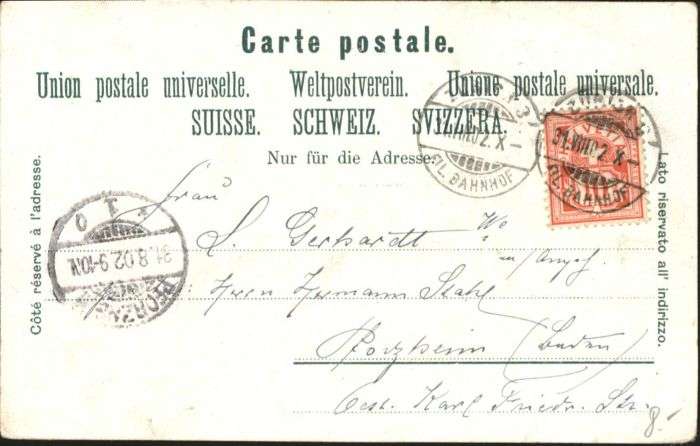 Carte postale.
Union postale universelle. Weltpostverein. Unione postale universale.
SUISSE. SCHWEIZ. SVIZZERA.
Nur für die Adresse.
Côté réservé à l'adresse.
Lato riservato all' indirizzo.
31.VIII.02.X-
FIL. BAHNHOF
31.VIII.02.X-
FIL. BAHNHOF
31.8.02.9-10N.
Frau
L. Gerhardt
Herrn Hermann Stahl
Pforzheim (Baden)
Karl Friedr. Str.